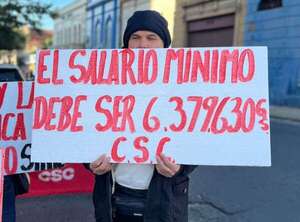 EL SALARIO MINIMO
DEBE SER 6.379.630 Gs
C.S.C.
Y LA
CSC